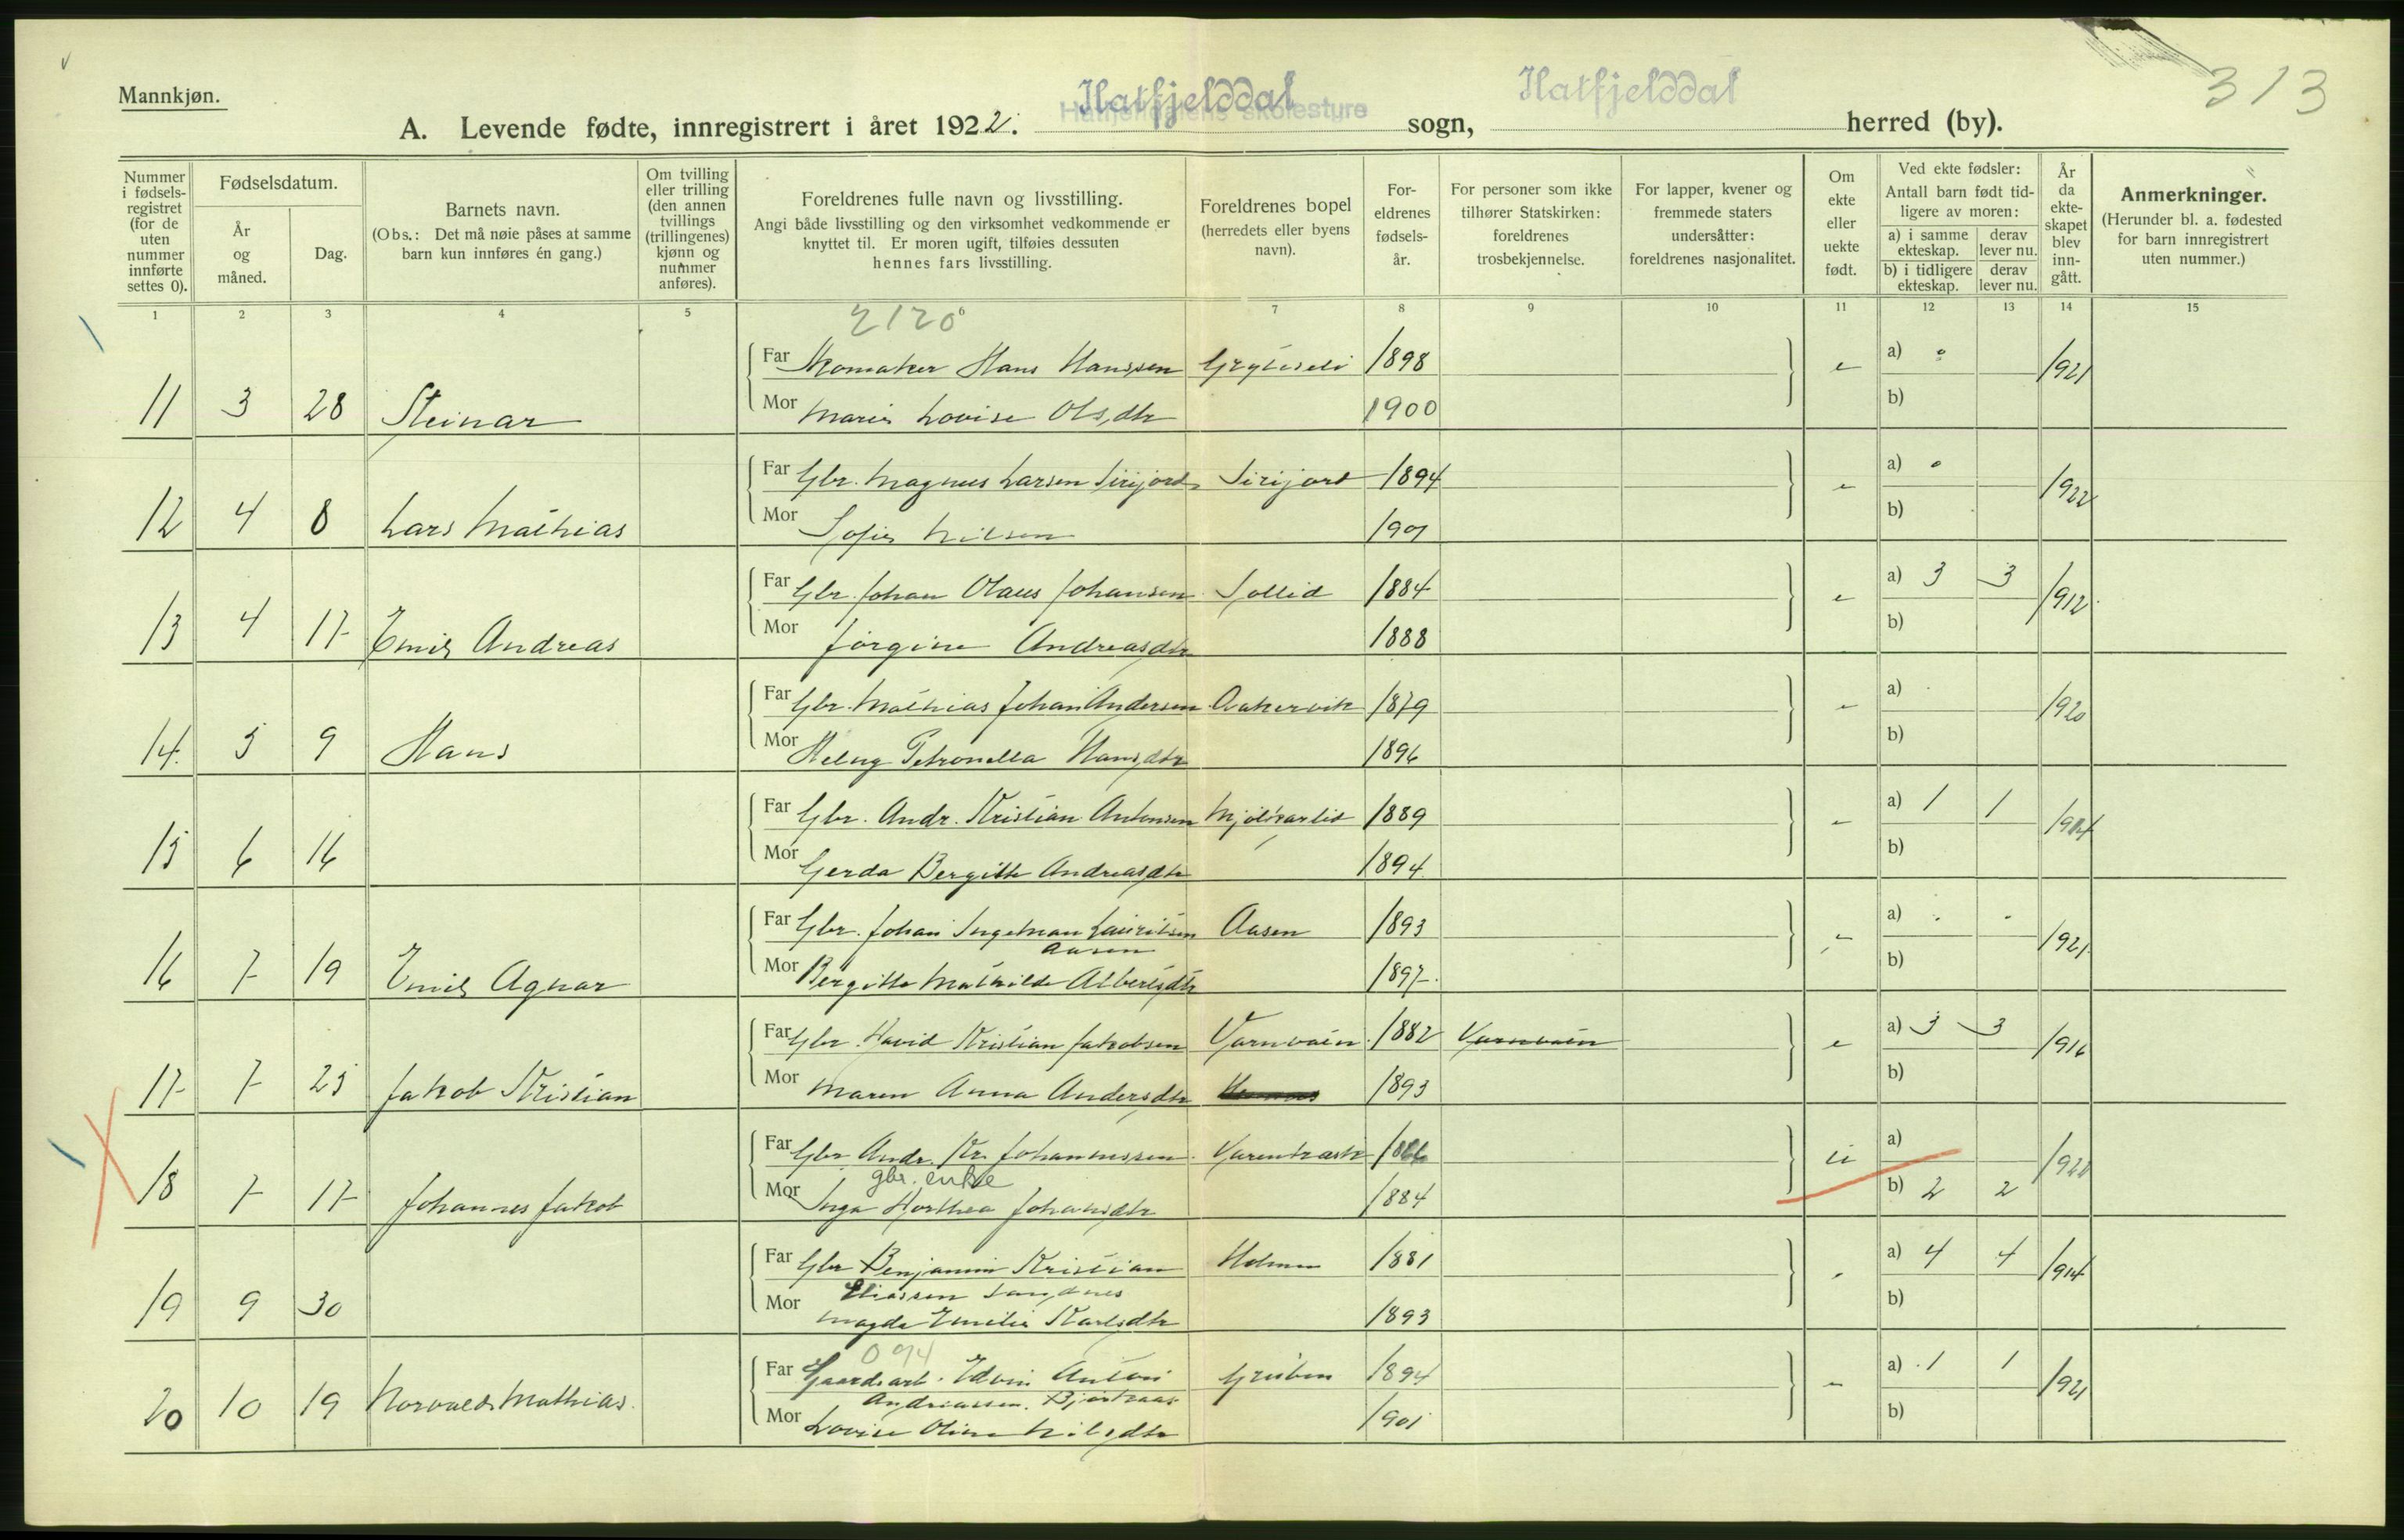 313
Mannkjøn.
A. Levende fødte, innregistrert i året 1922. Hatfjelddal sogn, Hatfjelddal herred (by).
Nummer i fødsels-registret (for de uten nummer innførte settes 0).
Fødselsdatum.
År og måned.
Dag.
Barnets navn.
(Obs.: Det må nøie påses at samme barn kun innføres én gang.)
Om tvilling eller trilling (den annen tvillings (trillingenes) kjønn og nummer anføres).
Foreldrenes fulle navn og livsstilling.
Angi både livsstilling og den virksomhet vedkommende er knyttet til. Er moren ugift, tilføies dessuten hennes fars livsstilling.
Foreldrenes bopel (herredets eller byens navn).
For-eldrenes fødsels-år.
For personer som ikke tilhører Statskirken: foreldrenes trosbekjennelse.
For lapper, kvener og fremmede staters undersåtter: foreldrenes nasjonalitet.
Om ekte eller uekte født.
Ved ekte fødsler: Antall barn født tid-ligere av moren:
a) i samme ekteskap. derav lever nu.
b) i tidligere ekteskap. derav lever nu.
År da ekte-skapet blev inn-gått.
Anmerkninger.
(Herunder bl. a. fødested for barn innregistrert uten nummer.)
1 2 3 4 5 6 7 8 9 10 11 12 13 14 15
2120
Far Skomaker Hans Hanssen Gryteseli 1898 e a) 0 1921
11 3 28 Steinar
Mor Marie Lovise Olsdtr 1900 b)
Far Gbr. Magnus Larsen Sirijord Sirijord 1894 e a) 0 1922
12 4 8 Lars Mathias
Mor Sofie Nilsen 1901 b)
Far Gbr. Johan Olaus Johansen Sollid 1884 e a) 3 3 1912
13 4 17 Emil Andreas
Mor Jørgine Andreasdtr 1888 b)
Far Gbr. Mathias Johan Andersen Aakervik 1879 a) 1920
14. 5 9 Hans
Mor Helny Petronella Hansdtr 1896 b)
Far Gbr. Andr. Kristian Antonsen 1889 a) 1 1
15 6 16
Mor Gerda Bergitte Andreasdtr 1894 b)
Far Gbr. Johan Ingeman Lauritsen Aasen Aasen 1893 a) 1921
16 7 19 Emil Agnar
Mor Bergitte Mathilde Albertsdtr 1897. b)
Far Gbr. David Kristian Jakobsen Varnvatn 1882 Varnvatn e a) 3 3 1916
17 7 25 Jakob Kristian
Mor Maren Anna Andersdtr 1893 b)
Far Gbr Andr. Kr. Johannessen Varentræsk u a)
18 7 17 Johannes Jakob
gbr. enke
Mor Inga Dorthea Johansdtr 1884 b) 2 2
Far Gbr Benjamin Kristian Eliassen Sandnes Holmen 1881 a) 4 4 1914
19 9 30
Mor Magda Emilie Karlsdtr 1893 b)
094
Far Gaardsarb. Edvin Antoni Andreassen. Gruben 1894 a) 1 1 1921
20 10 19 Norvald Mathias
Mor Lovise Oline Nilsdtr 1901 b)